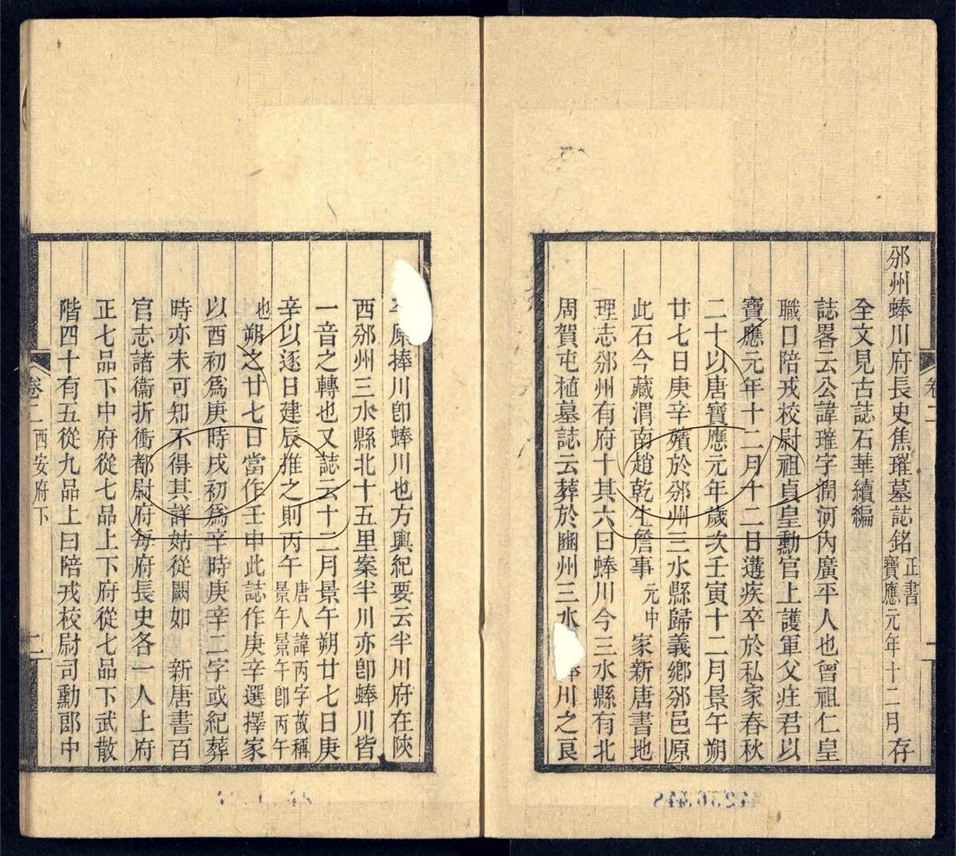 邠州蜯川府長史焦璀墓誌銘 正書 寶應元年十二月 存
全文見古誌石華續編
誌畧云公諱璀字潤河內廣平人也曾祖仁皇
職口陪戎校尉祖貞皇勳官上護軍父㽵君以
寶應元年十二月十二日遘疾卒於私家春秋
二十以唐寶應元年歲次壬寅十二月景午朔
廿七日庚辛殯於邠州三水縣歸義鄉邠邑原
此石今藏渭南趙乾生詹事 元中 家新唐書地
理志邠州有府十其六曰蜯川今三水縣有北
周賀屯植墓誌云葬於豳州三水川之良
原捧川卽蜯川也方輿紀要云半川府在陝
西邠州三水縣北十五里案半川亦卽蜯川皆
一音之轉也又誌云十二月景午朔廿七日庚
辛以逐日建辰推之則丙午 唐人諱丙字故稱 景午景午卽丙午
也 朔之廿七日當作壬申此誌作庚辛選擇家
以酉初爲庚時戌初爲辛時庚辛二字或紀葬
時亦未可知不得其詳姑從闕如 新唐書百
官志諸衞折衝都尉府每府長史各一人上府
正七品下中府從七品上下府從七品下武散
階四十有五從九品上曰陪戎校尉司勳郎中
卷二
卷二 西安府下